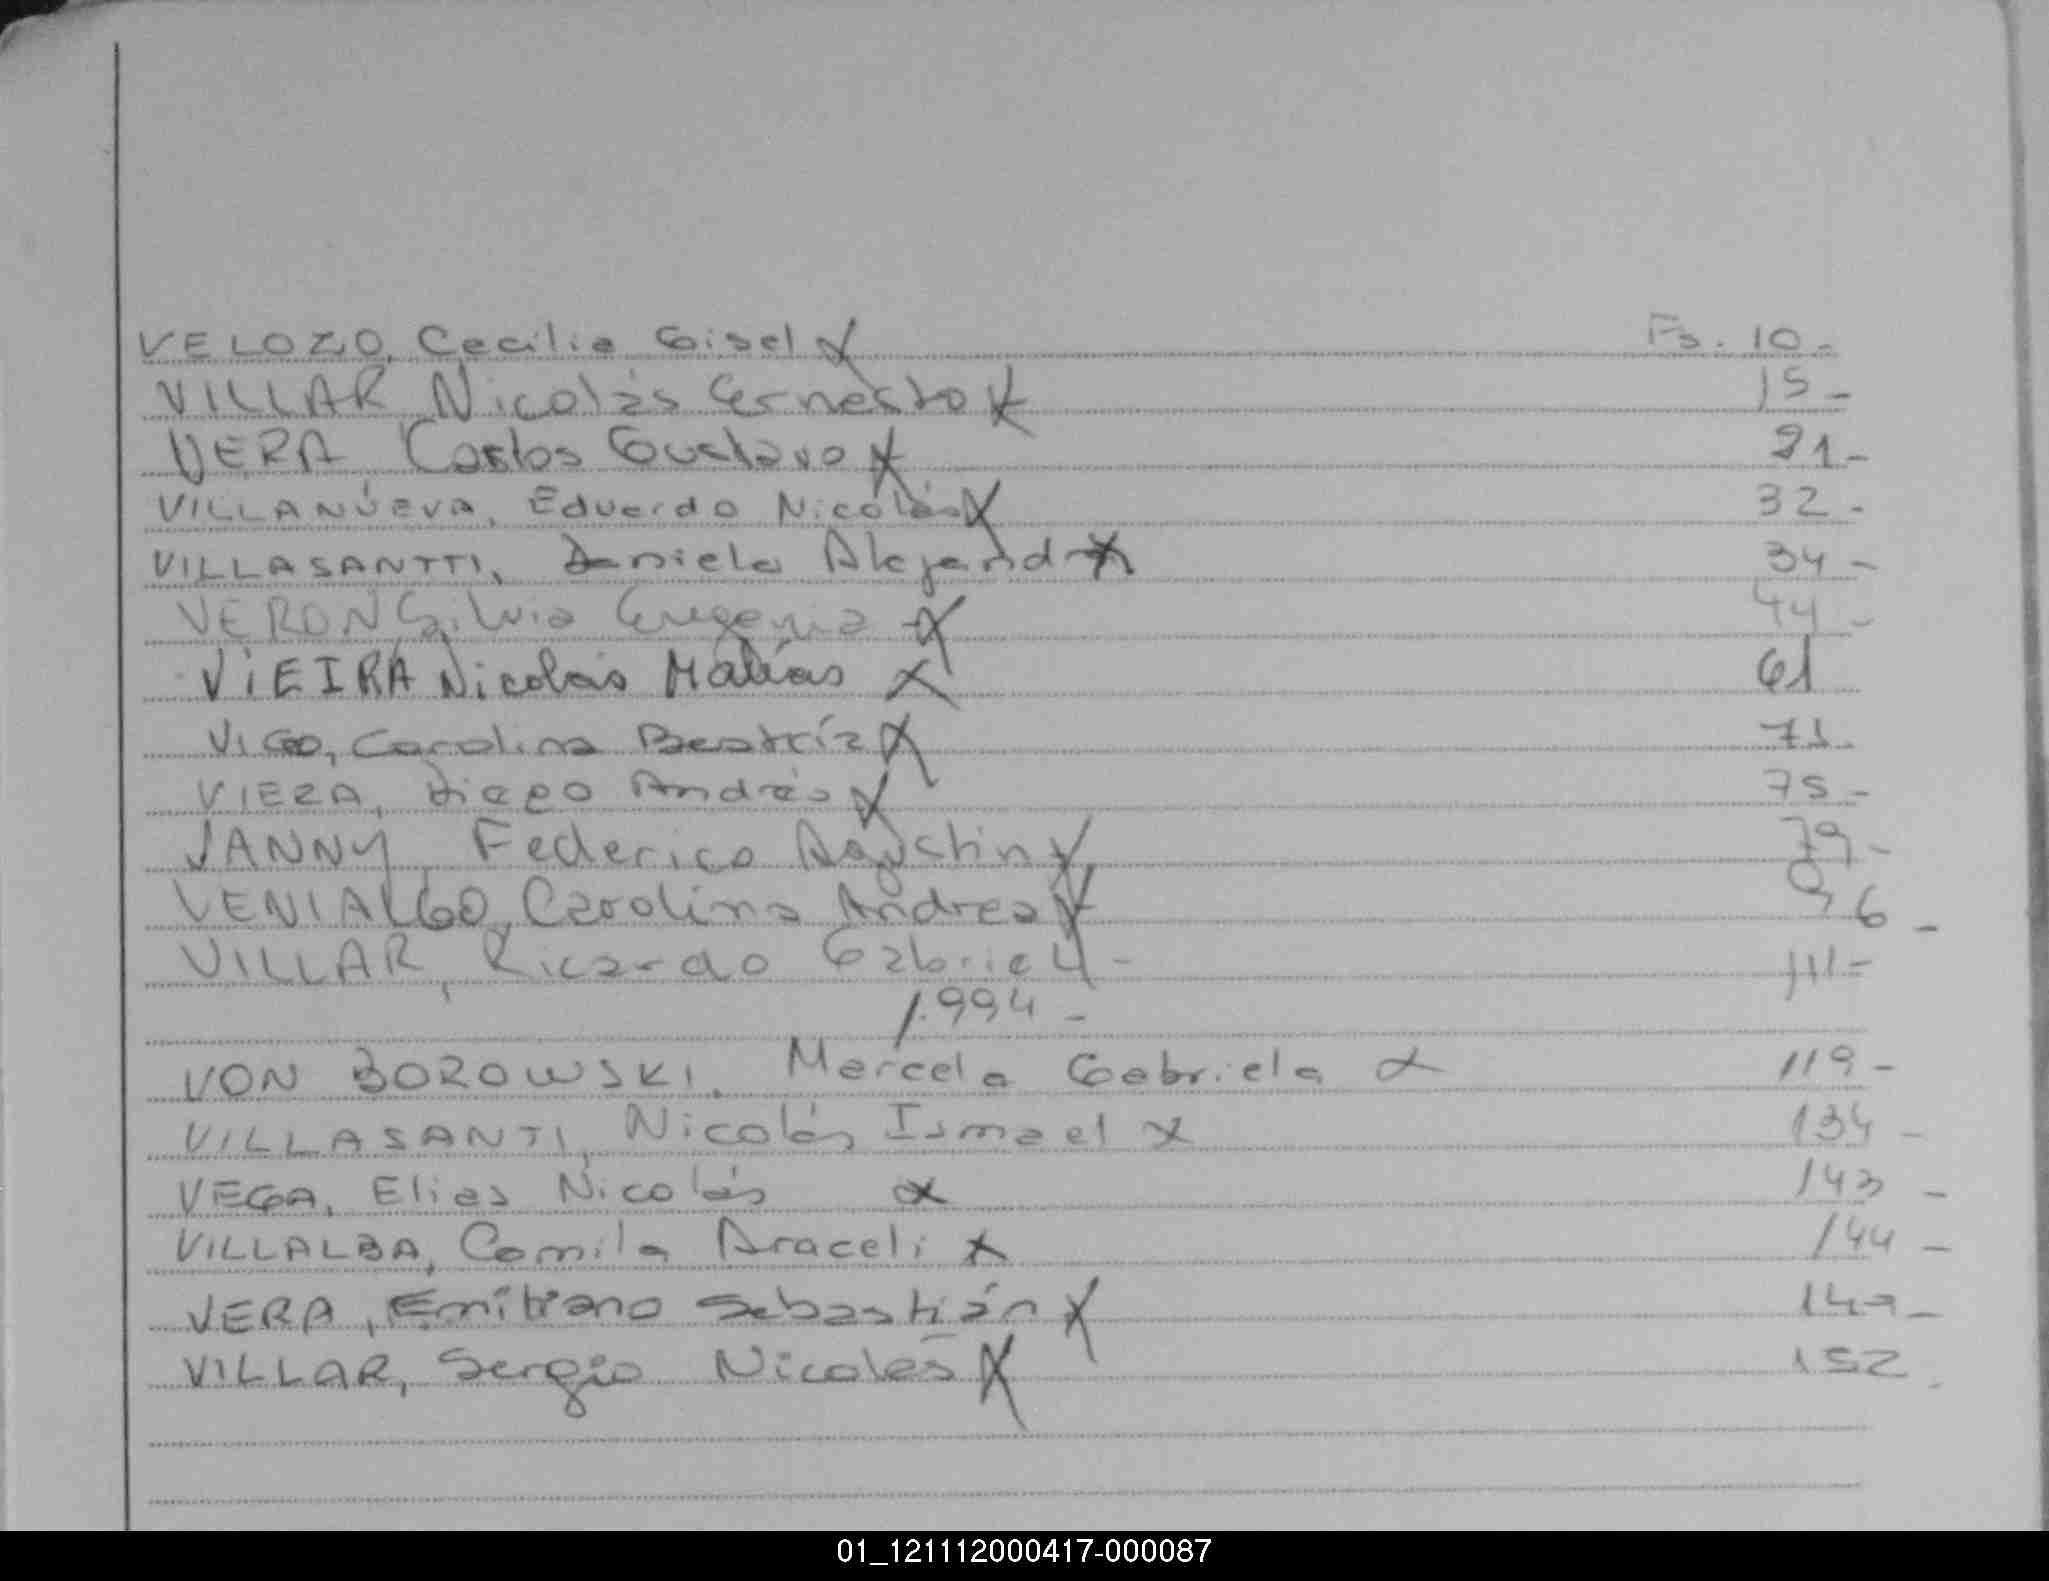 VELOZO, Cecilia Gisel x Fs. 10-
VILLAR Nicolás Ernesto x 15-
VERA Carlos Gustavo x 21-
VILLANÚEVA, Eduardo Nicolás x 32-
VILLASANTTI, Daniela Alejandr x 34-
VERON Silvia Eugenia x 44-
VIEIRA Nicolás Matías x 61
VIGO, Carolina Beatríz x 71.
VIERA, Diego Andrés x 75-
VANNY, Federico Agustin x 79-
VENIALGO, Carolina Andrea x 96-
VILLAR, Ricardo Gabriel x - 111-
1.994-
VON BOROWSKI, Marcela Gabriela x 119-
VILLASANTI, Nicolás Ismael x 134-
VEGA, Elias Nicolás x 143-
VILLALBA, Camila Araceli x 144-
VERA, Emiliano Sebastián x 147-
VILLAR, Sergio Nicolás x 152.
01_121112000417-000087